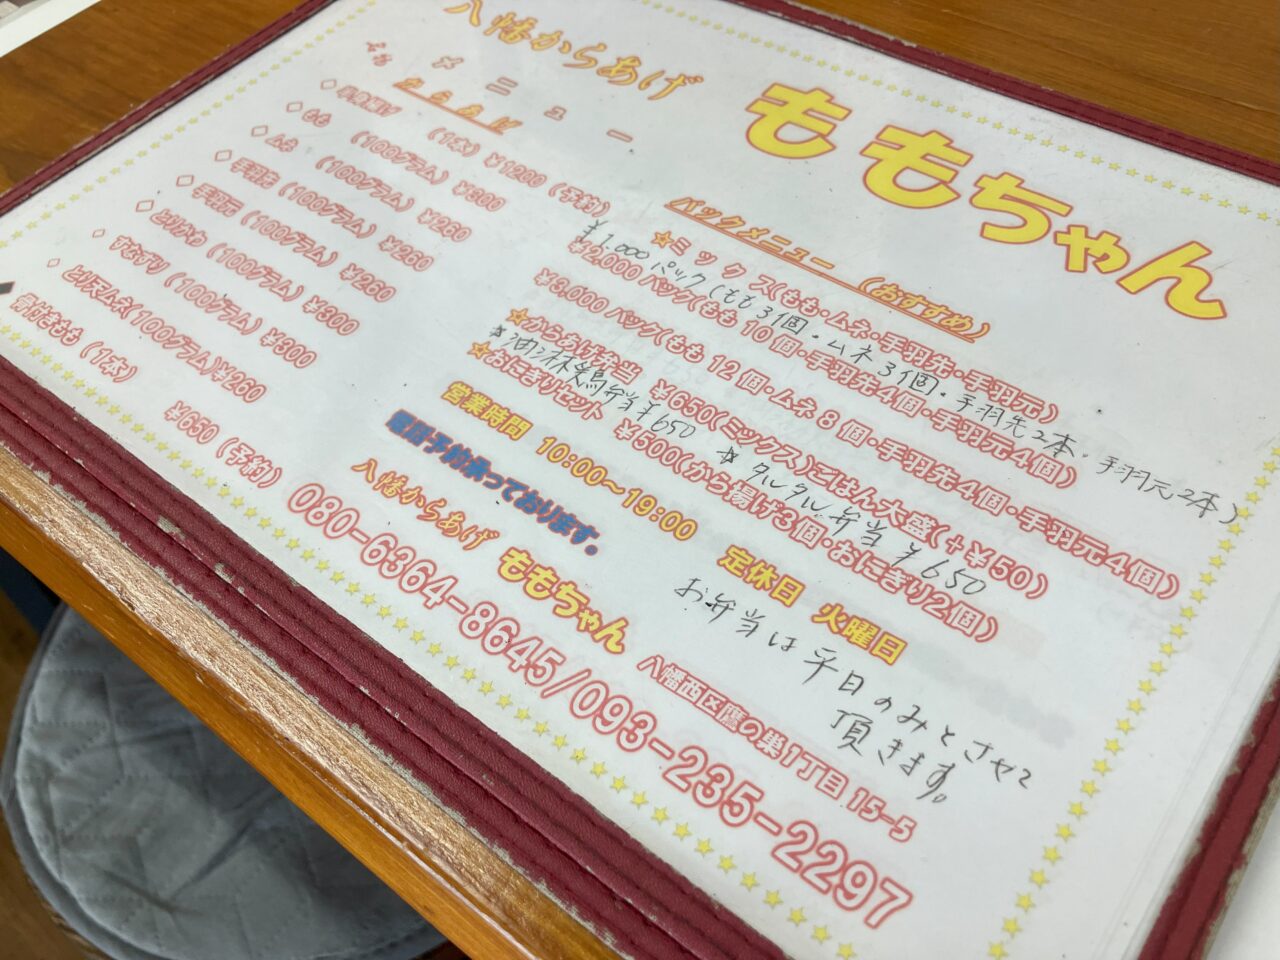 八幡からあげ
ももちゃん
メニュー
からあげ
◇半身揚げ (1本) ¥1200 (予約)
◇もも (100グラム) ¥300
◇ムネ (100グラム) ¥260
◇手羽先 (100グラム) ¥260
◇手羽元 (100グラム) ¥260
◇とりかわ (100グラム) ¥300
◇すなずり (100グラム) ¥300
◇とり天ムネ(100グラム) ¥260
骨付きもも (1本) ¥650 (予約)
パックメニュー (おすすめ)
☆ミックス(もも・ムネ・手羽先・手羽元)
¥1,000 パック(もも3個・ムネ3個・手羽先2本・手羽元2本)
¥2,000 パック(もも 10 個・手羽先4個・手羽元4個)
¥3,000 パック(もも 12 個・ムネ 8 個・手羽先4個・手羽元4個)
☆からあげ弁当 ¥650(ミックス)ごはん大盛(+¥50)
☆油淋鶏弁当¥650 ☆タルタル弁当¥650
☆おにぎりセット ¥500(から揚げ3個・おにぎり2個)
営業時間 10:00～19:00 定休日 火曜日
夜間予約承っております。
お弁当は平日のみとさせて
頂きます。
八幡からあげ ももちゃん 八幡西区鷹の巣1丁目 15-5
080-6364-8645/093-235-2297